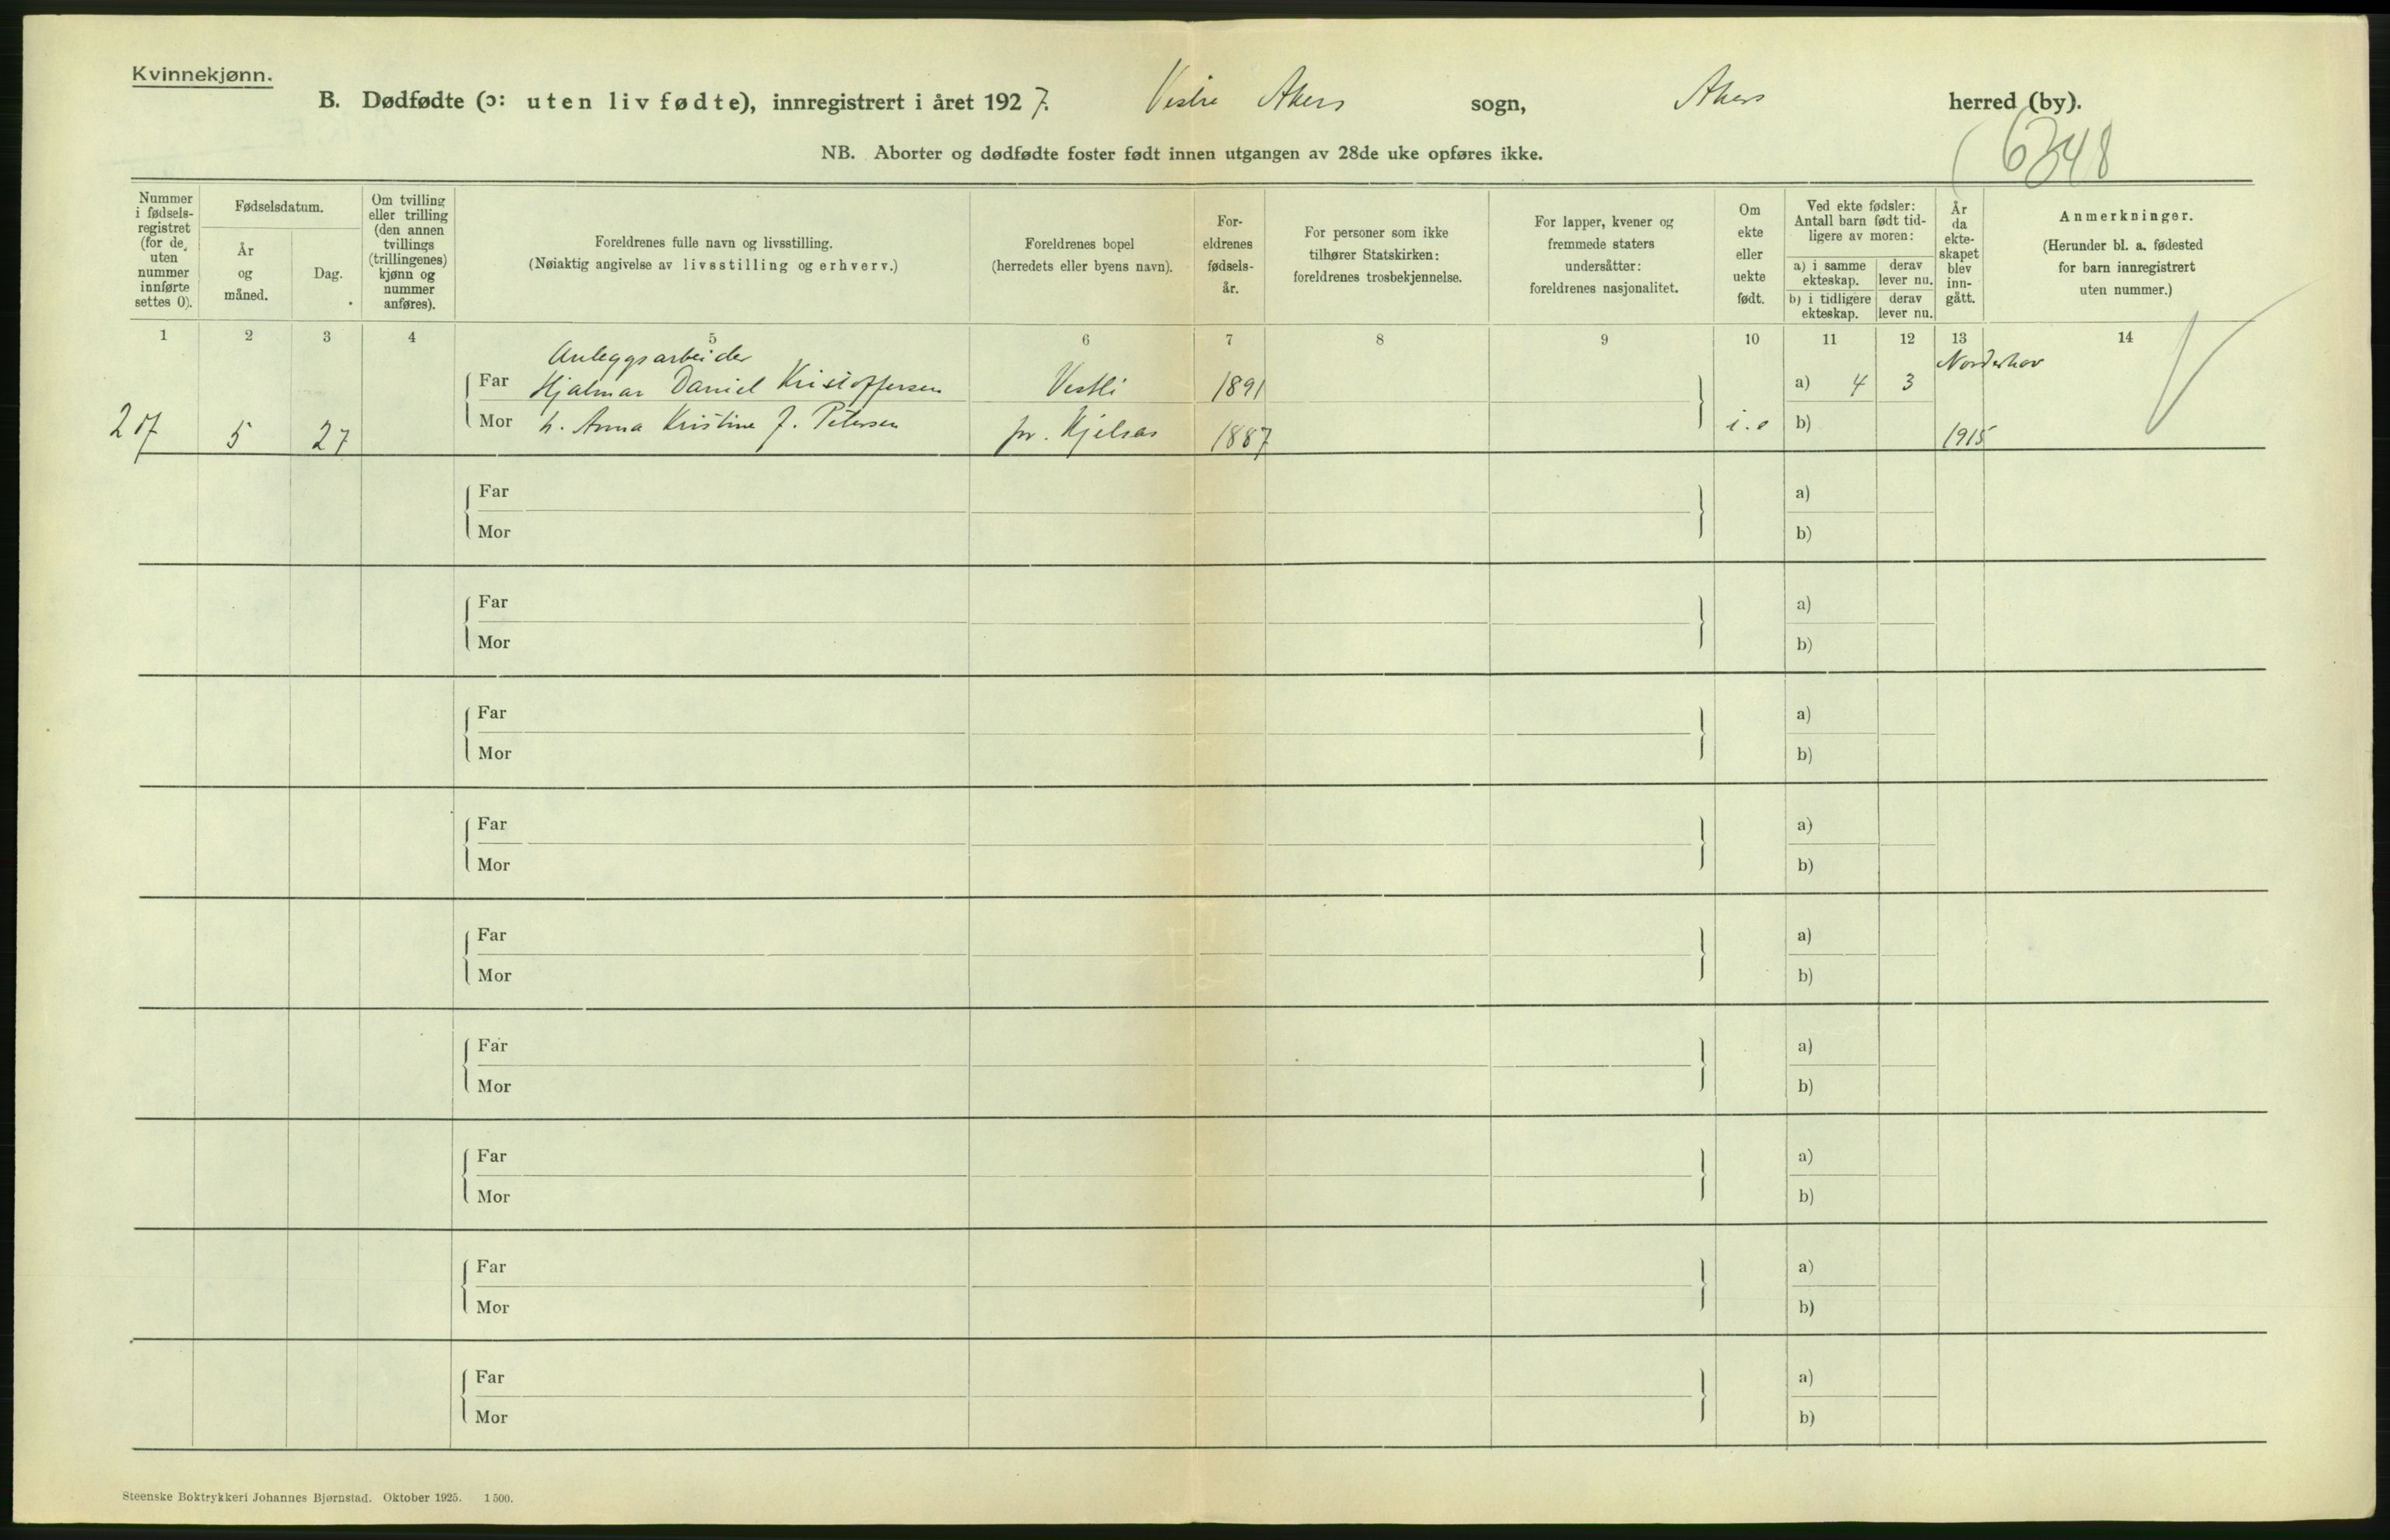 Kvinnekjønn.
B. Dødfødte (ɔ: uten liv fødte), innregistrert i året 1927. Vestre Akers sogn, Akers herred (by).
6348
NB. Aborter og dødfødte foster født innen utgangen av 28de uke opføres ikke.
Nummer i fødsels-registret (for de uten nummer innførte settes 0).
Fødselsdatum.
År og måned.
Dag.
Om tvilling eller trilling (den annen tvillings (trillingenes) kjønn og nummer anføres).
Foreldrenes fulle navn og livsstilling.
(Nøiaktig angivelse av livsstilling og erhverv.)
Foreldrenes bopel
(herredets eller byens navn).
For-eldrenes fødsels-år.
For personer som ikke tilhører Statskirken: foreldrenes trosbekjennelse.
For lapper, kvener og fremmede staters undersåtter: foreldrenes nasjonalitet.
Om ekte eller uekte født.
Ved ekte fødsler: Antall barn født tid-ligere av moren:
a) i samme ekteskap.
derav lever nu.
b) i tidligere ekteskap.
derav lever nu.
År da ekte-skapet blev inn-gått.
Anmerkninger.
(Herunder bl. a. fødested for barn innregistrert uten nummer.)
1 2 3 4 5 6 7 8 9 10 11 12 13 14
Anleggsarbeider
Norderhov
Far Hjalmar Daniel Kristoffersen Vestli 1891 a) 4 3
5 27 Mor h. Anna Kristine f. Petersen pr. Kjelsås 1887 b) 1915
Far a)
Mor b)
Far a)
Mor b)
Far a)
Mor b)
Far a)
Mor b)
Far a)
Mor b)
Far a)
Mor b)
Far a)
Mor b)
Far a)
Mor b)
Far a)
Mor b)
Steenske Boktrykkeri Johannes Bjørnstad. Oktober 1925. 1500.